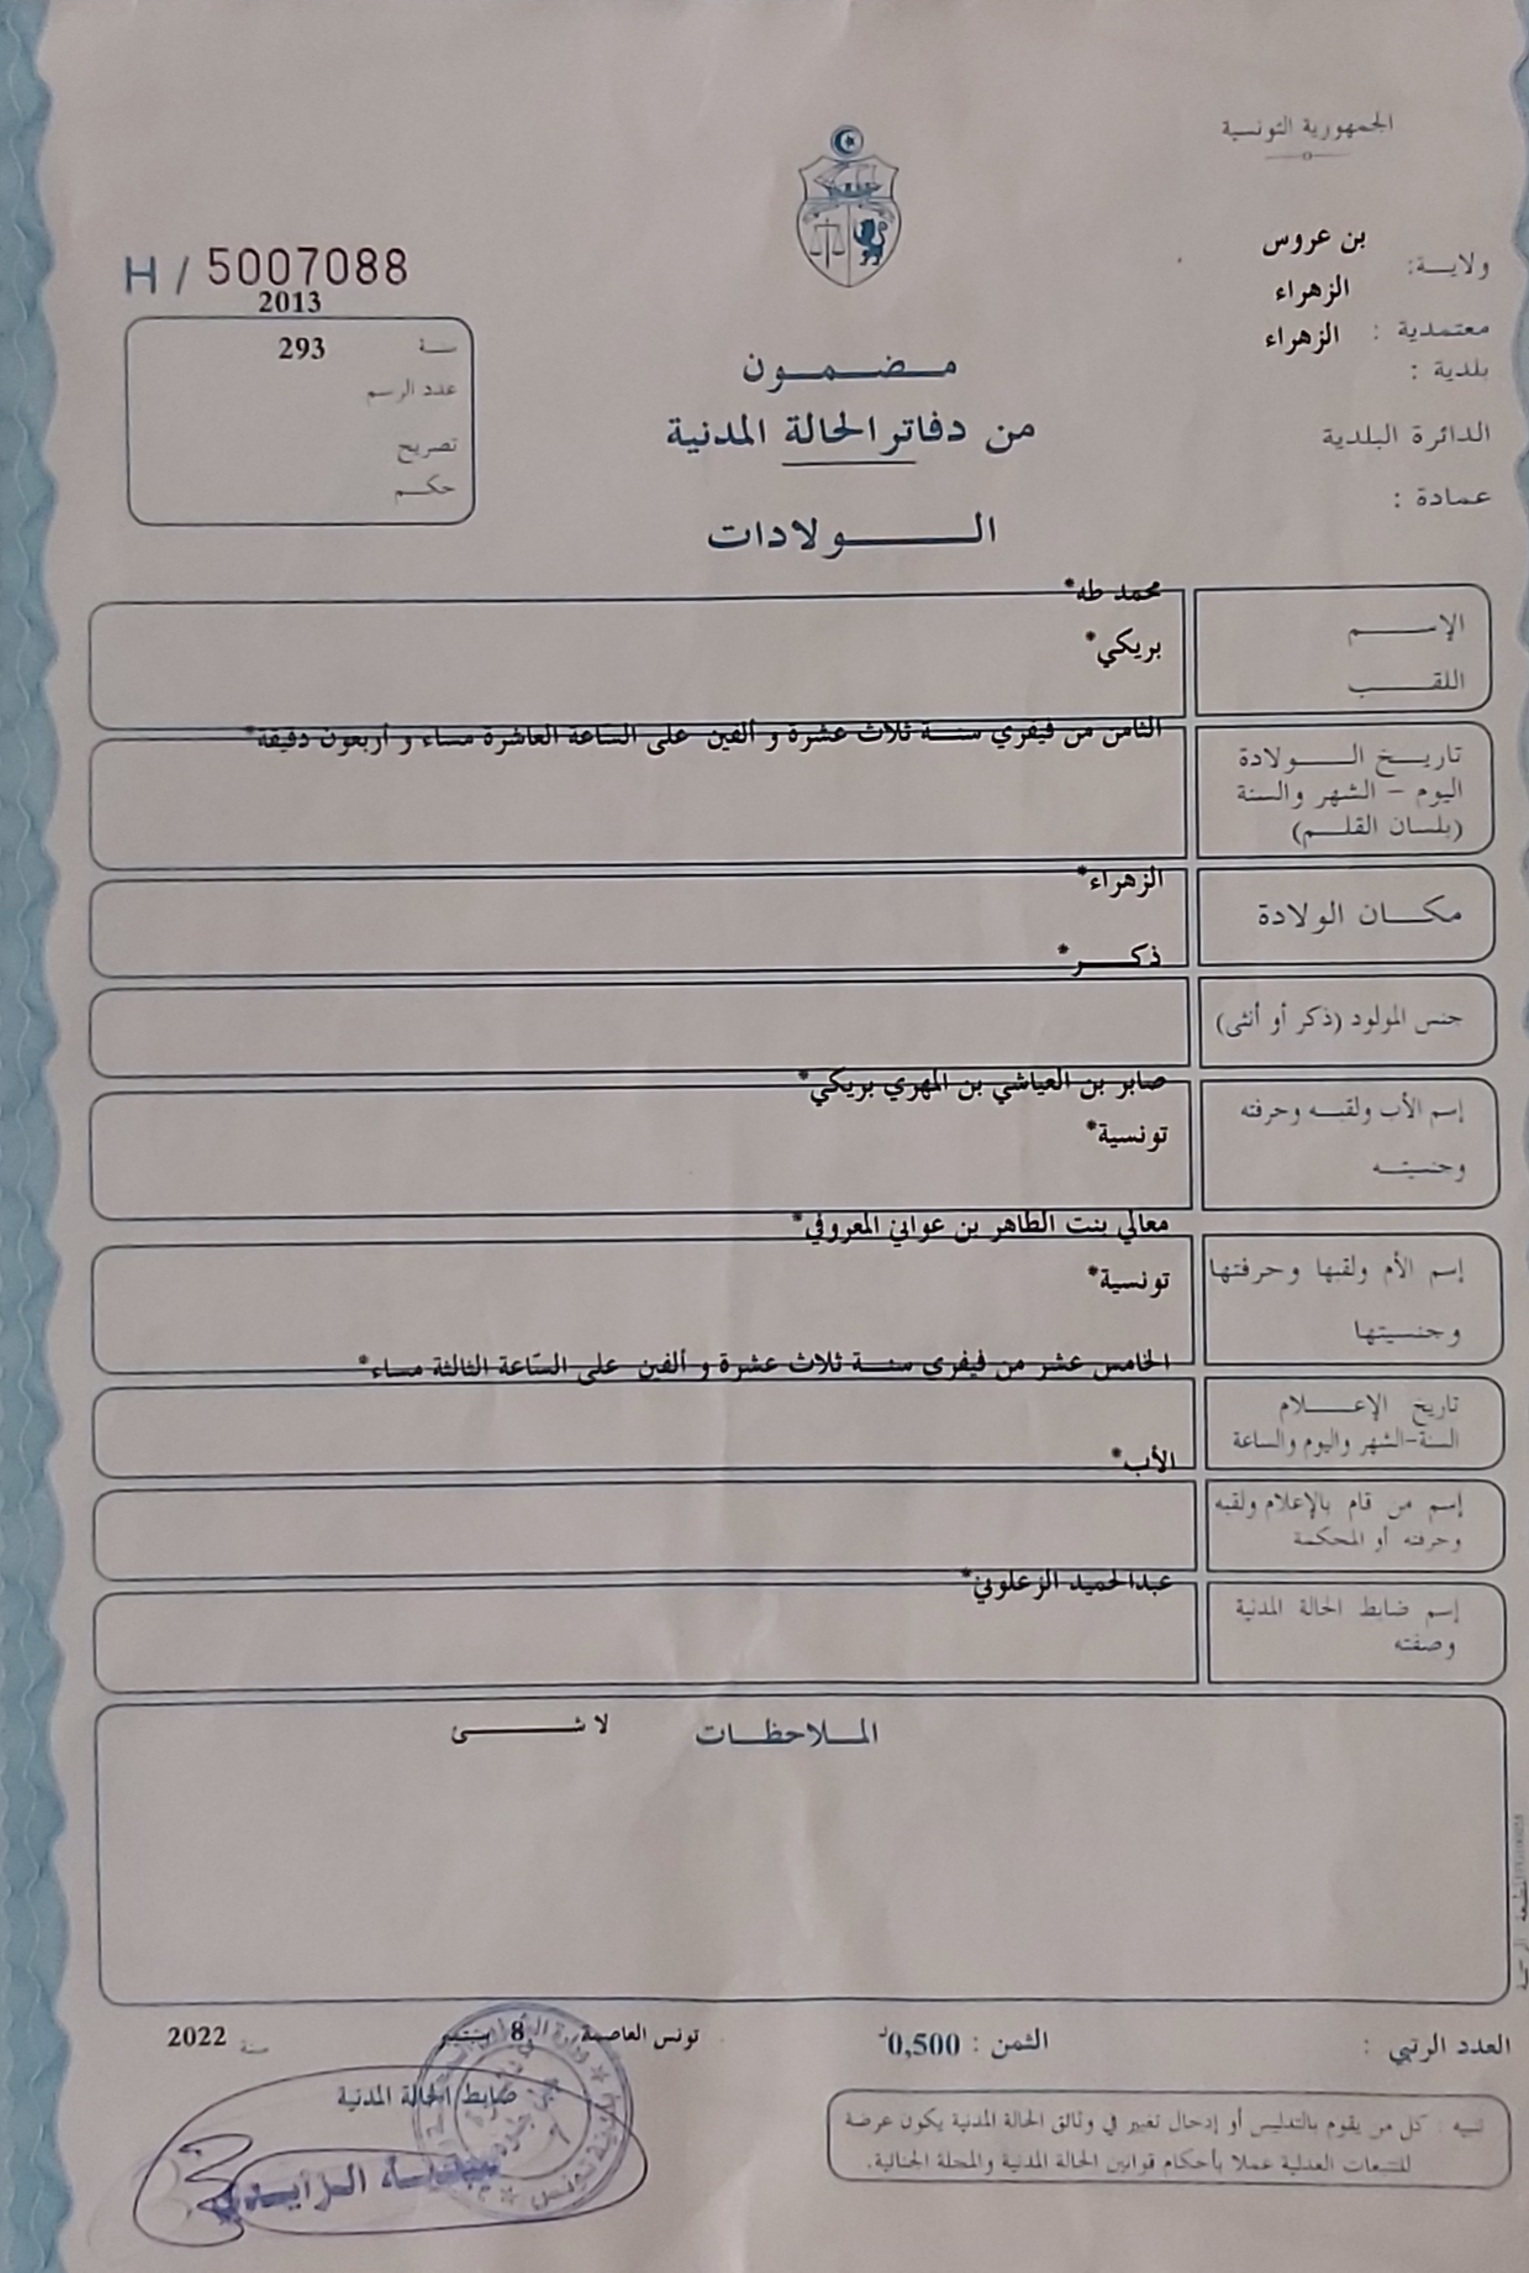 الجمهورية التونسية
ولايــة: بن عروس
معتمدية : الزهراء
بلدية : الزهراء
الدائرة البلدية
عمادة :
H / 5007088
2013
سنة 293
عدد الرسم
تصريح
حكم
مضمون
من دفاتر الحالة المدنية
الولادات
الإسم محمد طه*
اللقب بريكي*
تاريخ الولادة الثامن من فيفري سنة ثلاث عشرة و ألفين على السّاعة العاشرة مساء و أربعون دقيقة*
اليوم - الشهر والسنة
(بلسان القلم)
مكان الولادة الزهراء*
جنس المولود (ذكر أو أنثى) ذكر*
إسم الأب ولقبه وحرفته صابر بن العياشي بن المهري بريكي*
وجنسيته تونسية*
إسم الأم ولقبها وحرفتها معالي بنت الطاهر بن عواني المعروفي*
وجنسيتها تونسية*
تاريخ الإعلام الخامس عشر من فيفري سنة ثلاث عشرة و ألفين على السّاعة الثالثة مساء*
السنة-الشهر واليوم والساعة
إسم من قام بالإعلام ولقبه الأب*
وحرفته أو المحكمة
إسم ضابط الحالة المدنية عبدالحميد الزعلوني*
وصفته
الملاحظات لا شئ
العدد الرتبي :
الثمن : 0,500د
تونس العاصمة 8 سبتمبر سنة 2022
ضابط الحالة المدنية
تنبيه : كل من يقوم بالتدليس أو إدخال تغيير في وثائق الحالة المدنية يكون عرضة
للتتبعات العدلية عملا بأحكام قوانين الحالة المدنية والمجلة الجنائية.